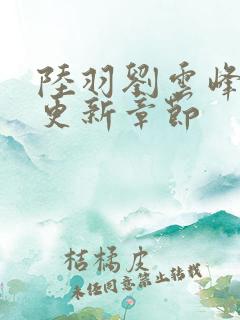 陸羽劉雲峰
更新章節
桔橘皮
未經同意禁止轉載